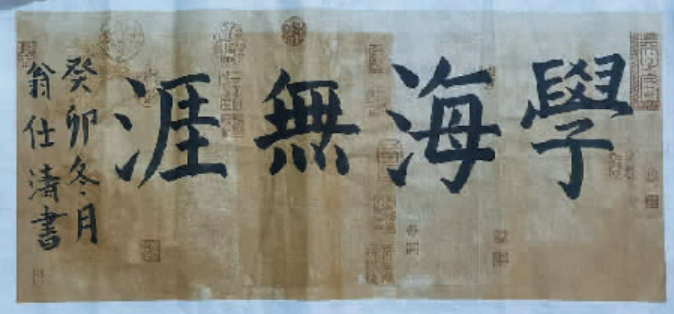 學海無涯
癸卯冬月
翁仕濤書